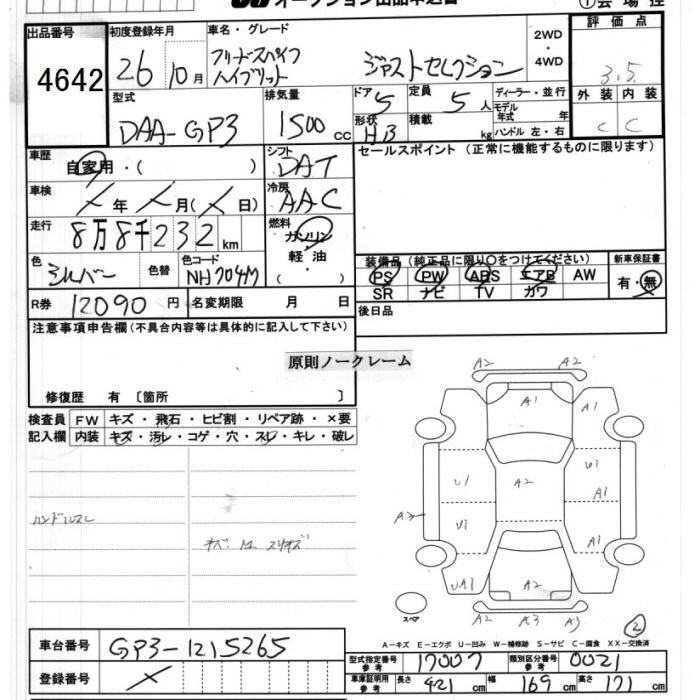 オークション出品申込書
① 会場控
出品番号 初度登録年月 車名・グレード 2WD ・ 4WD 評価点
4642 26 10月 フリードスパイク ハイブリット ジャストセレクション 3.5
型式 排気量 ドア 定員 ディーラー・並行 外装 内装
DAA-GP3 1500 cc 5 5人 モデル年式 年 C C
形状 HB 積載 kg ハンドル 左・右
車歴 自家用・( ) シフト DAT セールスポイント (正常に機能するものに限ります)
車検 年 月( 日) 冷房 AAC
走行 8万8千232km 燃料 ガソリン 軽油 ( )
色 シルバー 色替 色コード NH704M
装備品 (純正品に限り○をつけてください) 新車保証書
PS PW ABS エアB AW 有・無
SR ナビ TV カワ
R券 12090円 名変期限 月 日 後日品
注意事項申告欄(不具合内容等は具体的に記入して下さい)
原則ノークレーム
修復歴 有〔箇所 〕
検査員 FW キズ・飛石・ヒビ割・リペア跡・×要
記入欄 内装 キズ・汚レ・コゲ・穴・スレ・キレ・破レ
ハンドルスレ
キズ
A2 A2
A1 A1
U1 A2 U1
A1
A3 U1 A1
UA1 A2
スペア A2 A3 A3
②
A-キズ E-エクボ U-凹み W-補修跡 S-サビ C-腐食 XX-交換済
車台番号 GP3-1215265
登録番号
型式指定番号 参考 17007 類別区分番号 参考 0021
車庫証明用 参考 長さ 421 cm 幅 169 cm 高さ 171 cm